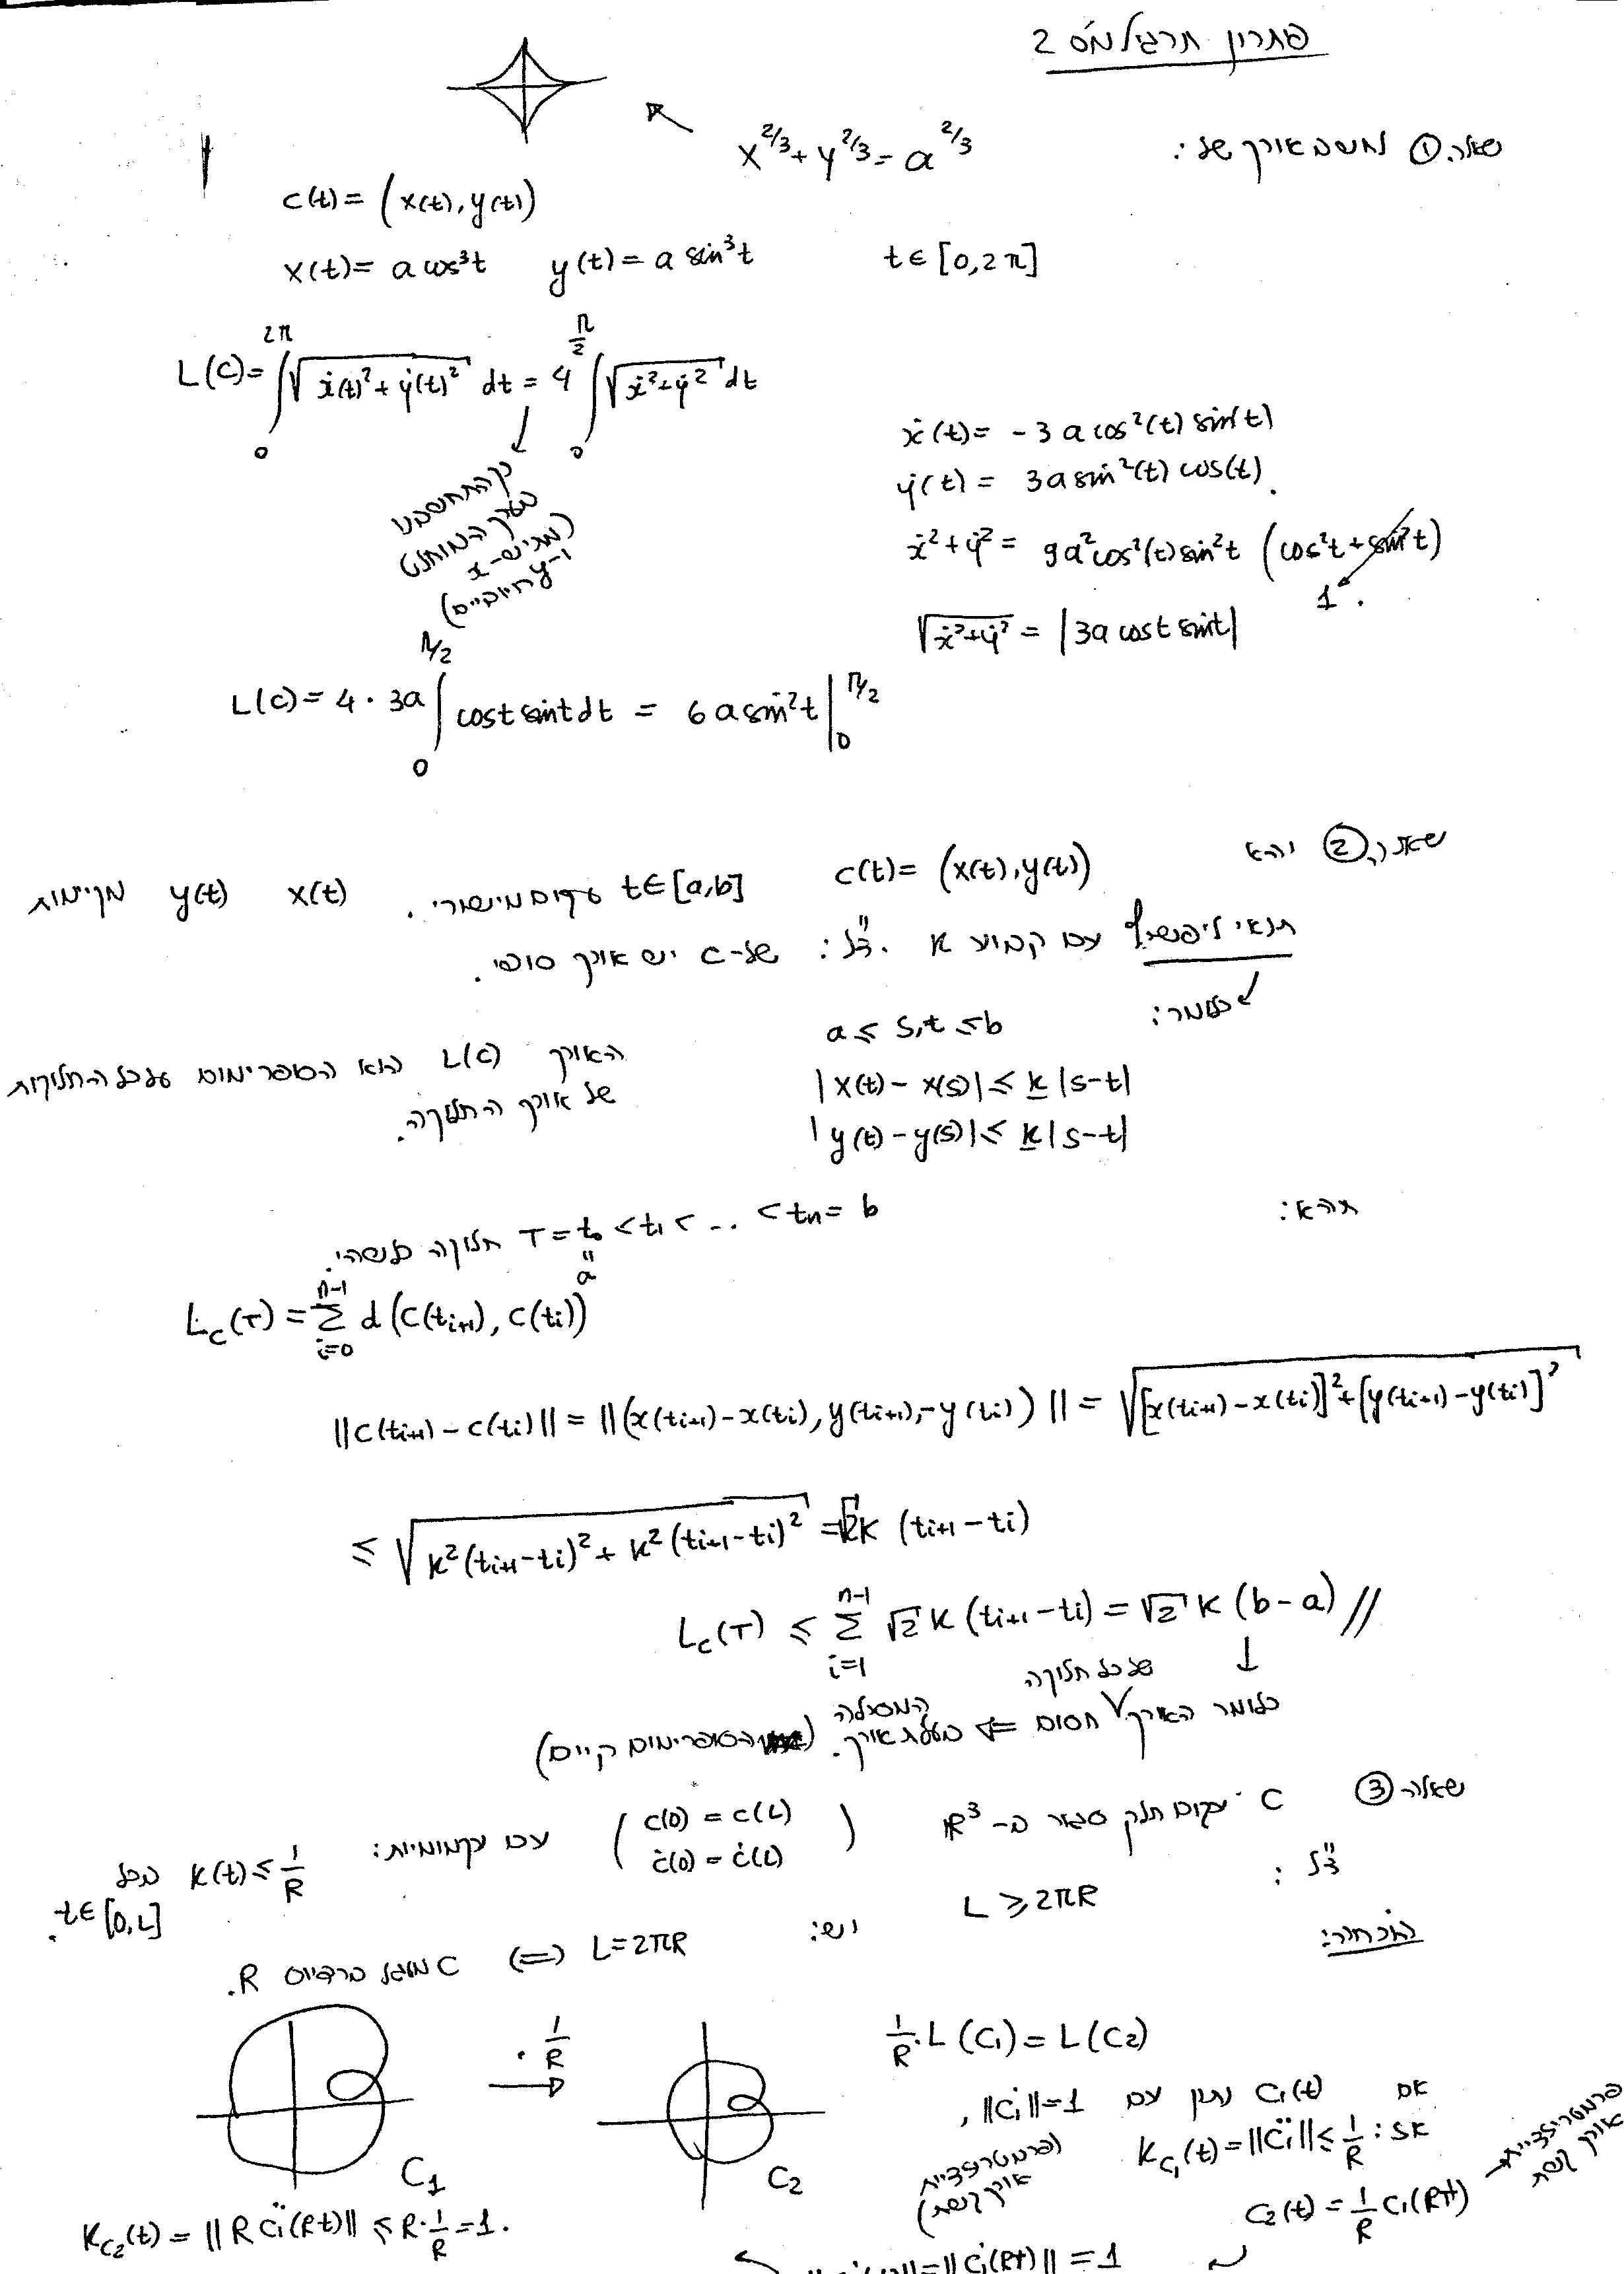 פתרון תרגיל מס' 2
שאלה ① לחשב אורך של: x^{2/3} + y^{2/3} = a^{2/3}
c(t) = (x(t), y(t))
x(t) = a cos³t   y(t) = a sin³t   t ∈ [0, 2π]
L(c) = ∫_0^{2π} √(ẋ(t)² + ẏ(t)²) dt = 4 ∫_0^{π/2} √(ẋ² + ẏ²) dt
כך התחשבנו
בערך המוחלט
x-
ו-y חיוביים)
ẋ(t) = -3a cos²(t) sin(t)
ẏ(t) = 3a sin²(t) cos(t).
ẋ² + ẏ² = 9a² cos²(t) sin²t (cos²t + sin²t)
1.
√(ẋ² + ẏ²) = |3a cost sint|
L(c) = 4 · 3a ∫_0^{π/2} cost sint dt = 6a sin²t |_0^{π/2}
שאלה ② יהא c(t) = (x(t), y(t)) t∈[a,b] עקום מישורי. x(t) y(t) מקיימות
תנאי ליפשיץ עם קבוע K. צ"ל: של-c יש אורך סופי.
כלומר: a ≤ s,t ≤ b
|x(t) - x(s)| ≤ K|s-t|
|y(t) - y(s)| ≤ K|s-t|
האורך L(c) הוא הסופרימום על כל החלוקות
של אורך החלוקה.
תהא: T = t₀ < t₁ < .. < tₙ = b חלוקה כלשהי.
"
a
L_c(T) = Σ_{i=0}^{n-1} d(c(t_{i+1}), c(t_i))
||c(t_{i+1}) - c(t_i)|| = ||(x(t_{i+1}) - x(t_i), y(t_{i+1}) - y(t_i))|| = √([x(t_{i+1}) - x(t_i)]² + [y(t_{i+1}) - y(t_i)]²)
≤ √(K²(t_{i+1} - t_i)² + K²(t_{i+1} - t_i)²) = √2 K (t_{i+1} - t_i)
L_c(T) ≤ Σ_{i=1}^{n-1} √2 K (t_{i+1} - t_i) = √2 K (b-a) //
↓
כלומר האורך של כל חלוקה חסום ⇐ המסילה בעלת אורך. (הסופרימום קיים)
שאלה ③ C עקום חלק סגור ב-ℝ³ (c(0) = c(L) ċ(0) = ċ(L)) עם עקמומיות: K(t) ≤ 1/R לכל
t∈[0,L].
צ"ל: L ≥ 2πR
ויש: L = 2πR ⟺ C מעגל ברדיוס R.
הוכחה:
C₁   · 1/R →   C₂
1/R · L(C₁) = L(C₂)
אם C₁(t) נתון עם ||Ċ₁|| = 1,
(פרמטריזציית
אורך קשת)
אז: K_{C₁}(t) = ||C̈₁|| ≤ 1/R
C₂(t) = 1/R C₁(Rt)
פרמטריזציית
אורך קשת
K_{C₂}(t) = ||R C̈₁(Rt)|| ≤ R · 1/R = 1.
= ||Ċ₁(Rt)|| = 1